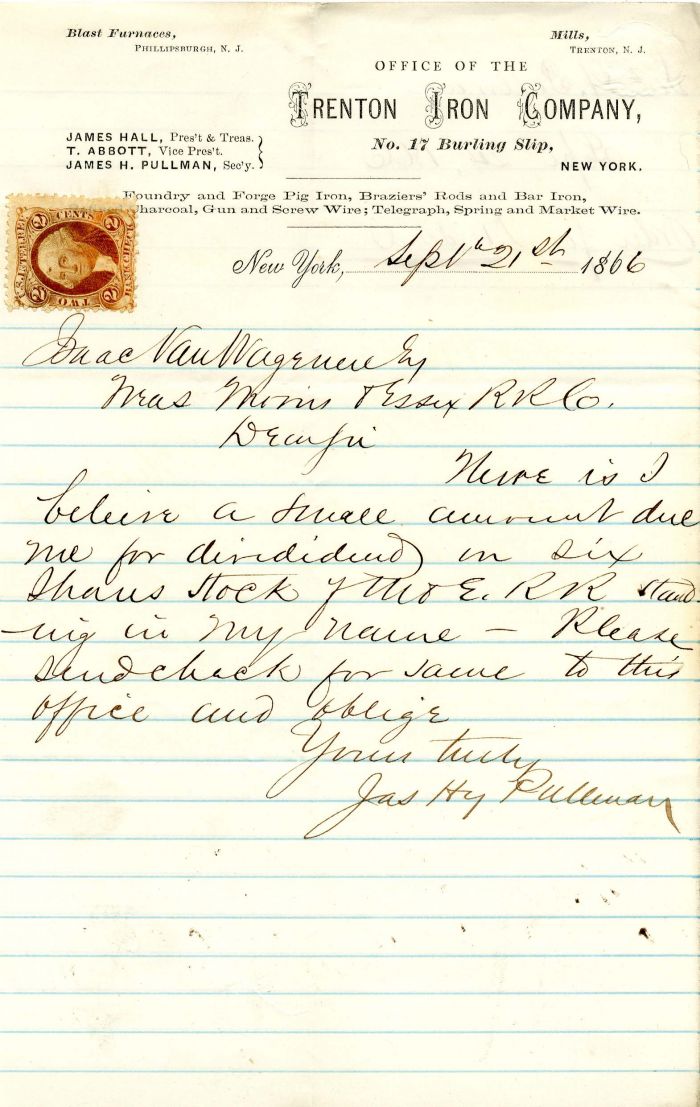 Blast Furnaces,
PHILLIPSBURGH, N. J.
Mills,
TRENTON, N. J.
OFFICE OF THE
TRENTON IRON COMPANY,
No. 17 Burling Slip,
NEW YORK.
JAMES HALL, Pres't & Treas.
T. ABBOTT, Vice Pres't.
JAMES H. PULLMAN, Sec'y.
Foundry and Forge Pig Iron, Braziers' Rods and Bar Iron,
Charcoal, Gun and Screw Wire; Telegraph, Spring and Market Wire.
U.S. INTER. REV.
2 CENTS 2
BANK CHECK
2 TWO 2
New York, Sept 21st 1866
Isaac Van Wagenen Esq
Treas Morris & Essex R R Co.
Dear Sir
There is I
beleive a small amount due
me for divididend on six
shares stock of M & E. R R stand
-ing in my name - Please
send check for same to this
office and oblige
Yours truly
Jas Hy Pullman